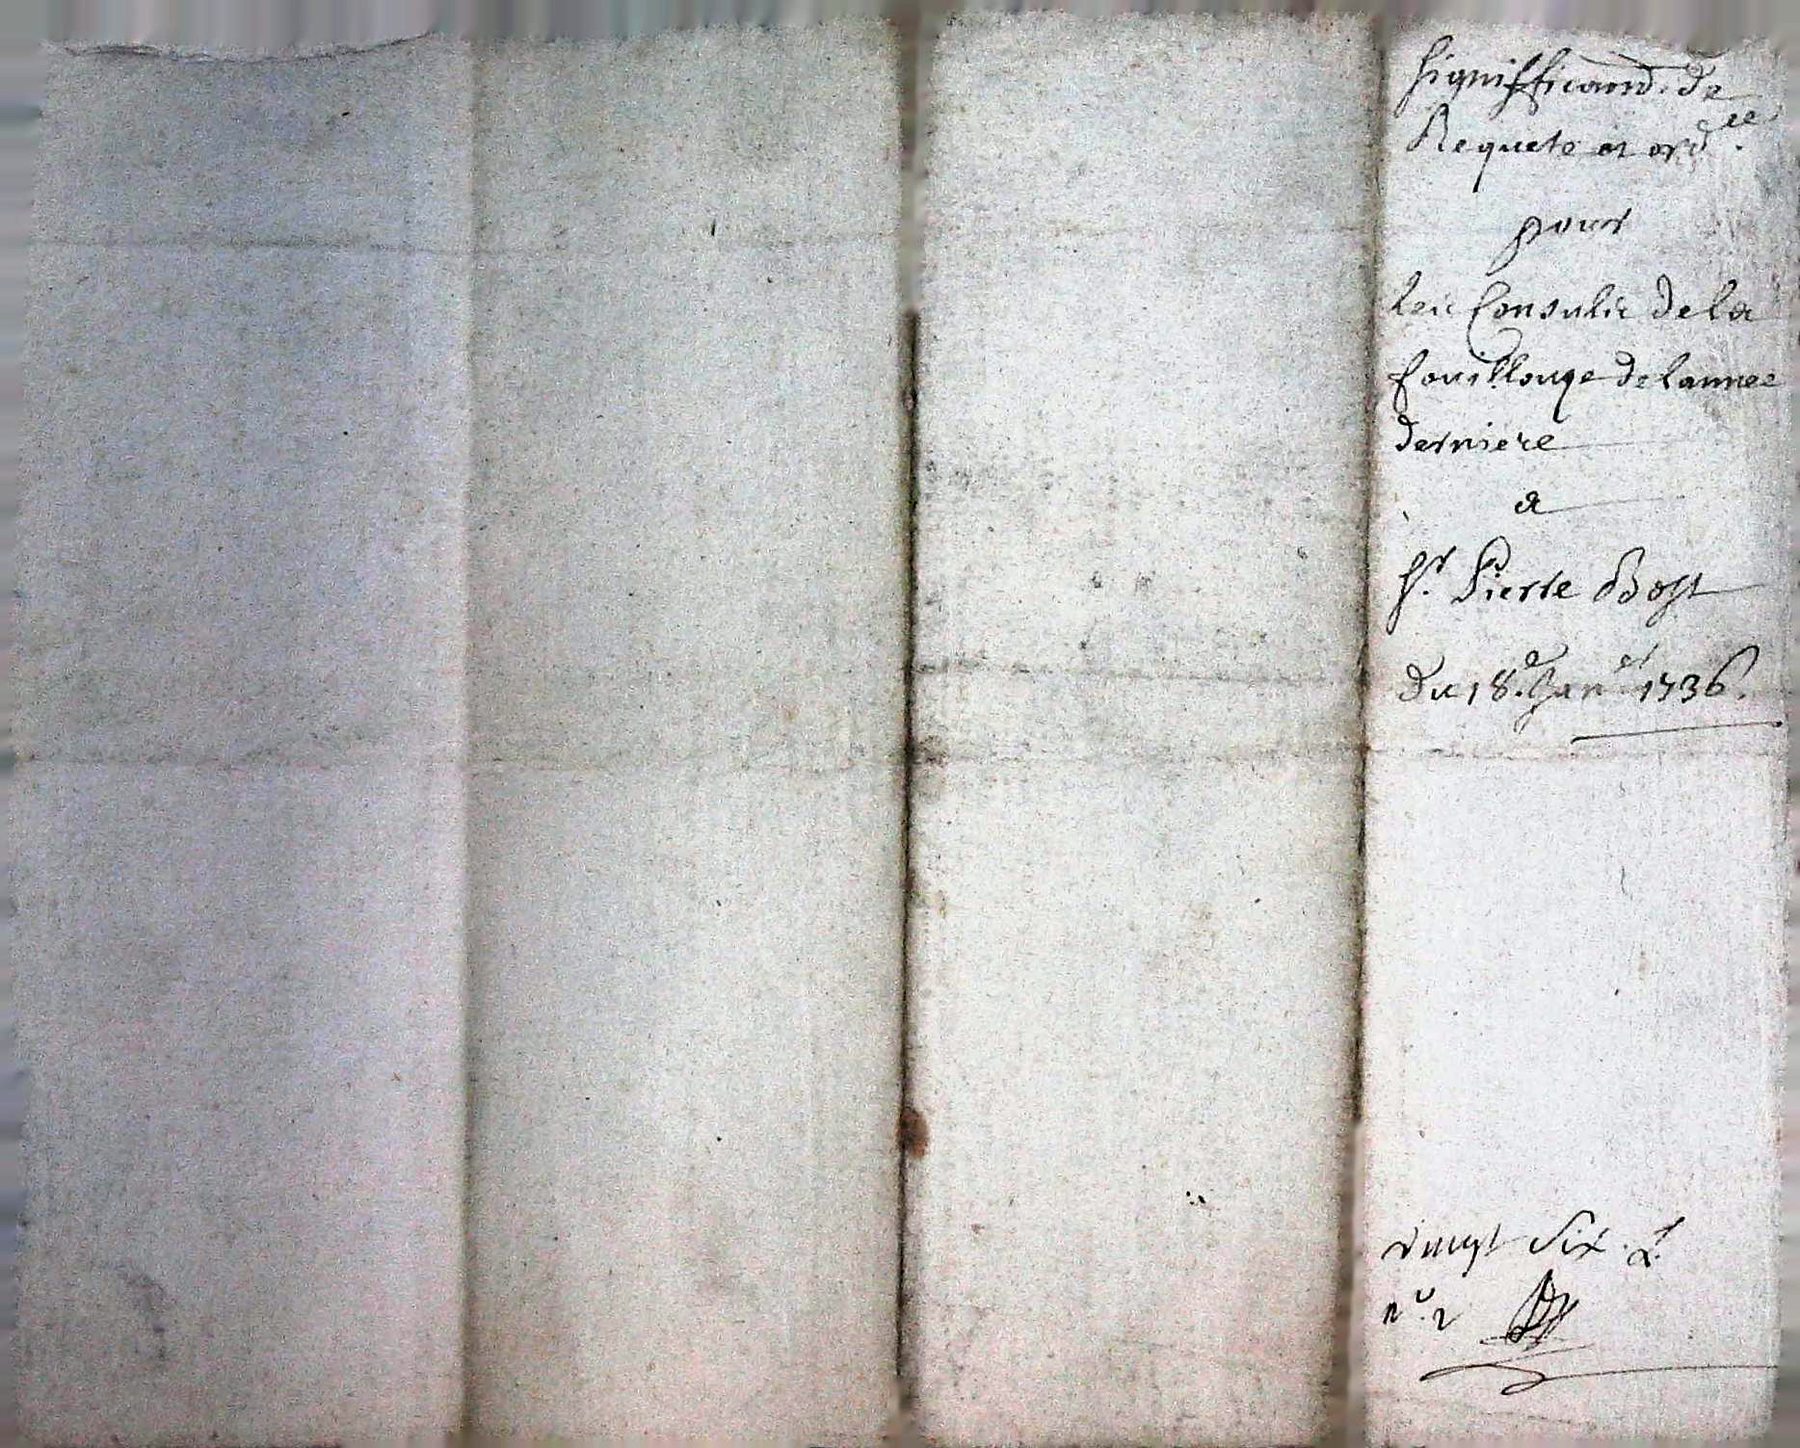 Signifficaõn de
Requete et ord.ce
pour
les Consulz de la
fouillouze de lannee
derniere
a
Sr. Pierre Bost
du 18.e Janer 1736.
vingt Six
no. 2